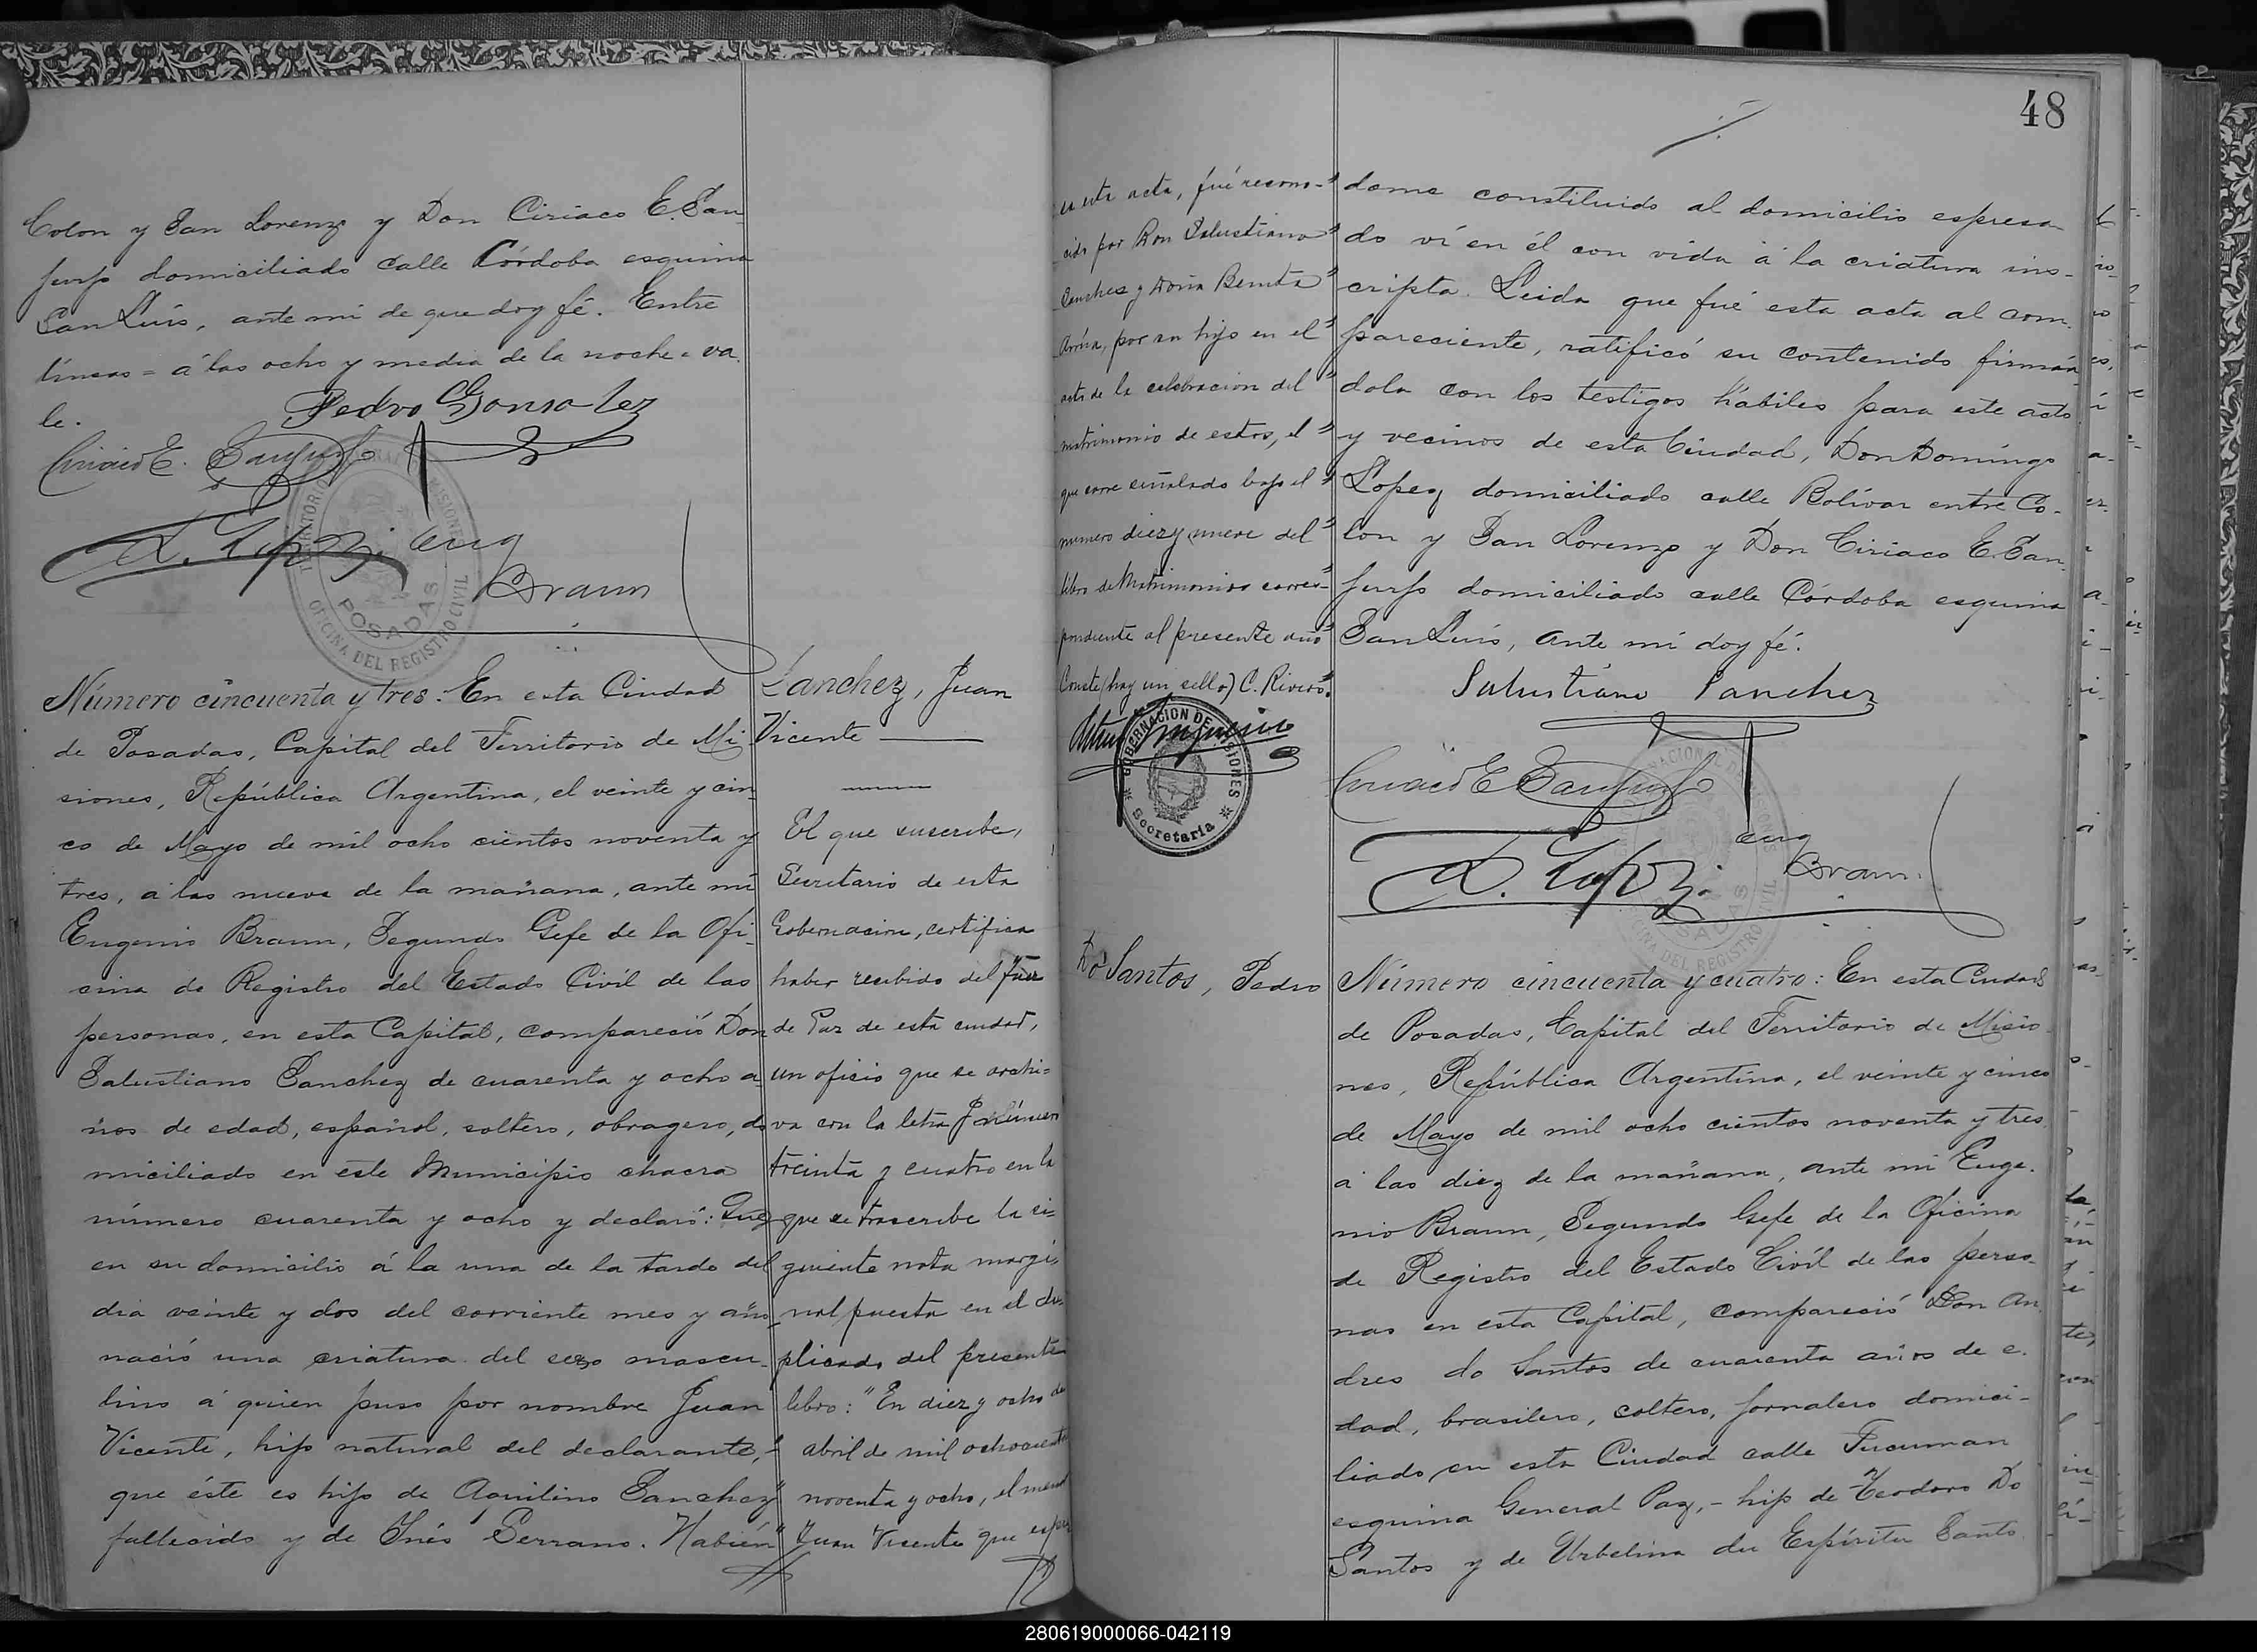 Colon y San Lorenzo y Don Ciriaco E. San
jurjo domiciliado calle Córdoba esquina
San Luis, ante mi de que doy fé. Entre
líneas = á las ocho y media de la noche = va
le.
Pedro Gonsalez
Ciriaco E. Sanjurjo
D. Lopez
Eug Braun
POSADAS
OFICINA DEL REGISTRO CIVIL
Número cincuenta y tres: En esta Ciudad
de Posadas, Capital del Territorio de Mi
siones, República Argentina, el veinte y cin
co de Mayo de mil ocho cientos noventa y
tres, á las nueve de la mañana, ante mi
Eugenio Braun, Segundo Gefe de la Ofi-
cina de Registro del Estado Civil de las
personas, en esta Capital, compareció Don
Salustiano Sanchez de cuarenta y ocho a
ños de edad, español, soltero, obragero, do
miciliado en este Municipio chacra
número cuarenta y ocho y declaró: Que
en su domicilio á la una de la tarde del
dia veinte y dos del corriente mes y año
nació una criatura del sexo mascu-
lino á quien puso por nombre Juan
Vicente, hijo natural del declarante,
que éste es hijo de Aquilino Sanchez
fallecido y de Inés Serrano. Habién
Sanchez, Juan
Vicente
El que suscribe,
Secretario de esta
Gobernacion, certifica
haber recibido del Juez
de Paz de esta ciudad,
un oficio que se archi=
va con la letra J número
treinta y cuatro en la
que se trascribe la si=
guiente nota margi=
nal puesta en el du=
plicado del presente
libro: "En diez y ocho de
abril de mil ochocientos
noventa y ocho, el menor
Juan Vicente que espre
48
sa esta acta, fué recono-
cido por Don Salustiano
Sanchez y Doña Benita
por su hijo en el
acto de la celebracion del
matrimonio de estos, el
que corre señalado bajo el
numero diez y nueve del
libro de Matrimonios corres-
pondiente al presente año
Conste (hay un sello) C. Rivero".
GOBERNACION DE MISIONES
Secretaria
dome constituido al domicilio espresa
do ví en él con vida á la criatura ins-
cripta. Leida que fué esta acta al com-
pareciente, ratificó su contenido firmán
dola con los testigos hábiles para este acto
y vecinos de esta Ciudad, Don Domingo
Lopez domiciliado calle Bolívar entre Co-
lon y San Lorenzo y Don Ciriaco E. San
jurjo domiciliado calle Córdoba esquina
San Luis, ante mi doy fé.
Salustiano Sanchez
Ciriaco E Sanjurjo
D. Lopez
Eug Braun
Do Santos, Pedro
Número cincuenta y cuatro: En esta Ciudad
de Posadas, Capital del Territorio de Misio
nes, República Argentina, el veinte y cinco
de Mayo de mil ocho cientos noventa y tres
á las diez de la mañana, ante mi Euge-
nio Braun, Segundo Gefe de la Oficina
de Registro del Estado Civil de las perso-
nas en esta Capital, compareció Don An
dres do Santos de cuarenta años de e-
dad, brasilero, soltero, jornalero domici-
liado en esta Ciudad calle Tucuman
esquina General Paz, - hijo de Teodoro Do
Santos y de Urbelina du Espíritu Santo
280619000066-042119